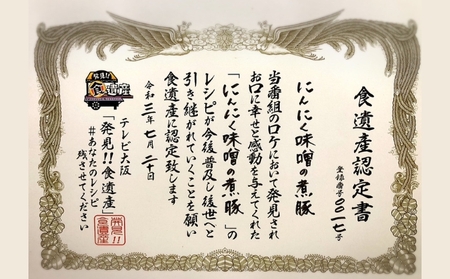 食遺産認定書
登録番号0017号
にんにく味噌の煮豚
当番組のロケにおいて発見され
お口に幸せと感動を与えてくれた
「にんにく味噌の煮豚」の
レシピが今後普及し後世へと
引き継がれていくことを願い
食遺産に認定致します
令和三年七月二十日
テレビ大阪
「発見!!食遺産」
#あなたのレシピ
残させてください
発見!!
食遺産
発見!!
食遺産